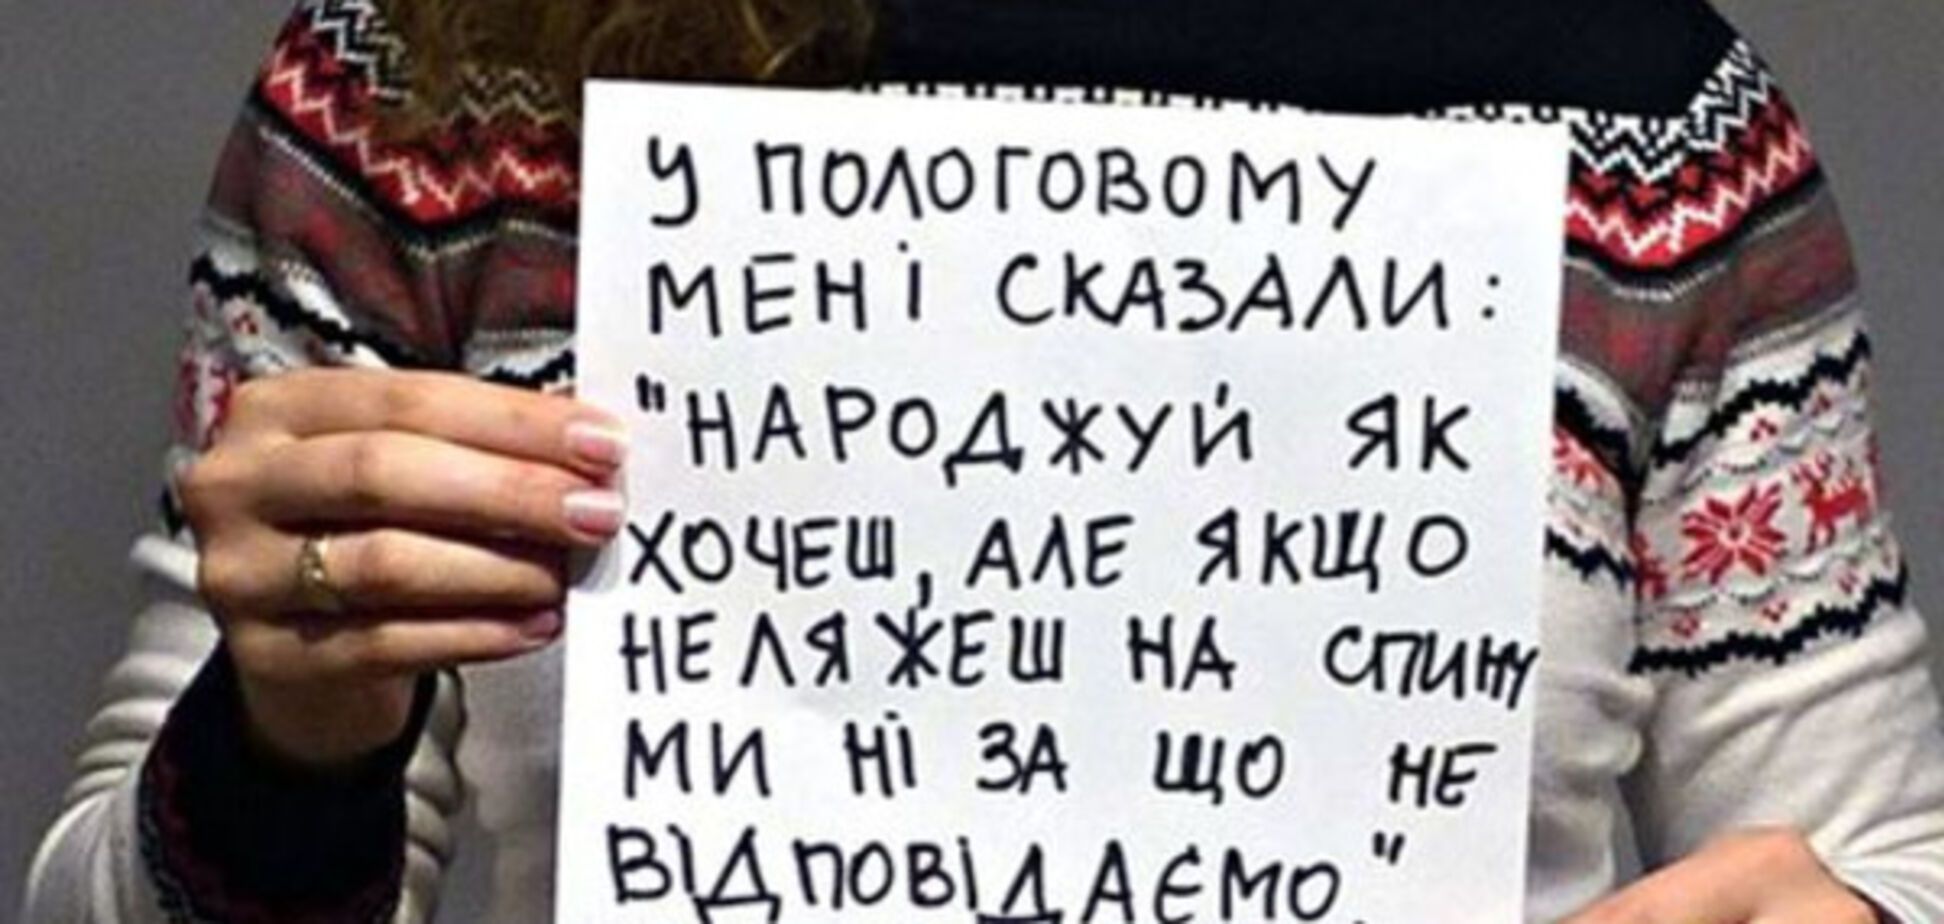 У ПОЛОГОВОМУ
МЕНІ СКАЗАЛИ:
"НАРОДЖУЙ ЯК
ХОЧЕШ, АЛЕ ЯКЩО
НЕ ЛЯЖЕШ НА СПИНУ
МИ НІ ЗА ЩО НЕ
ВІДПОВІДАЄМО."